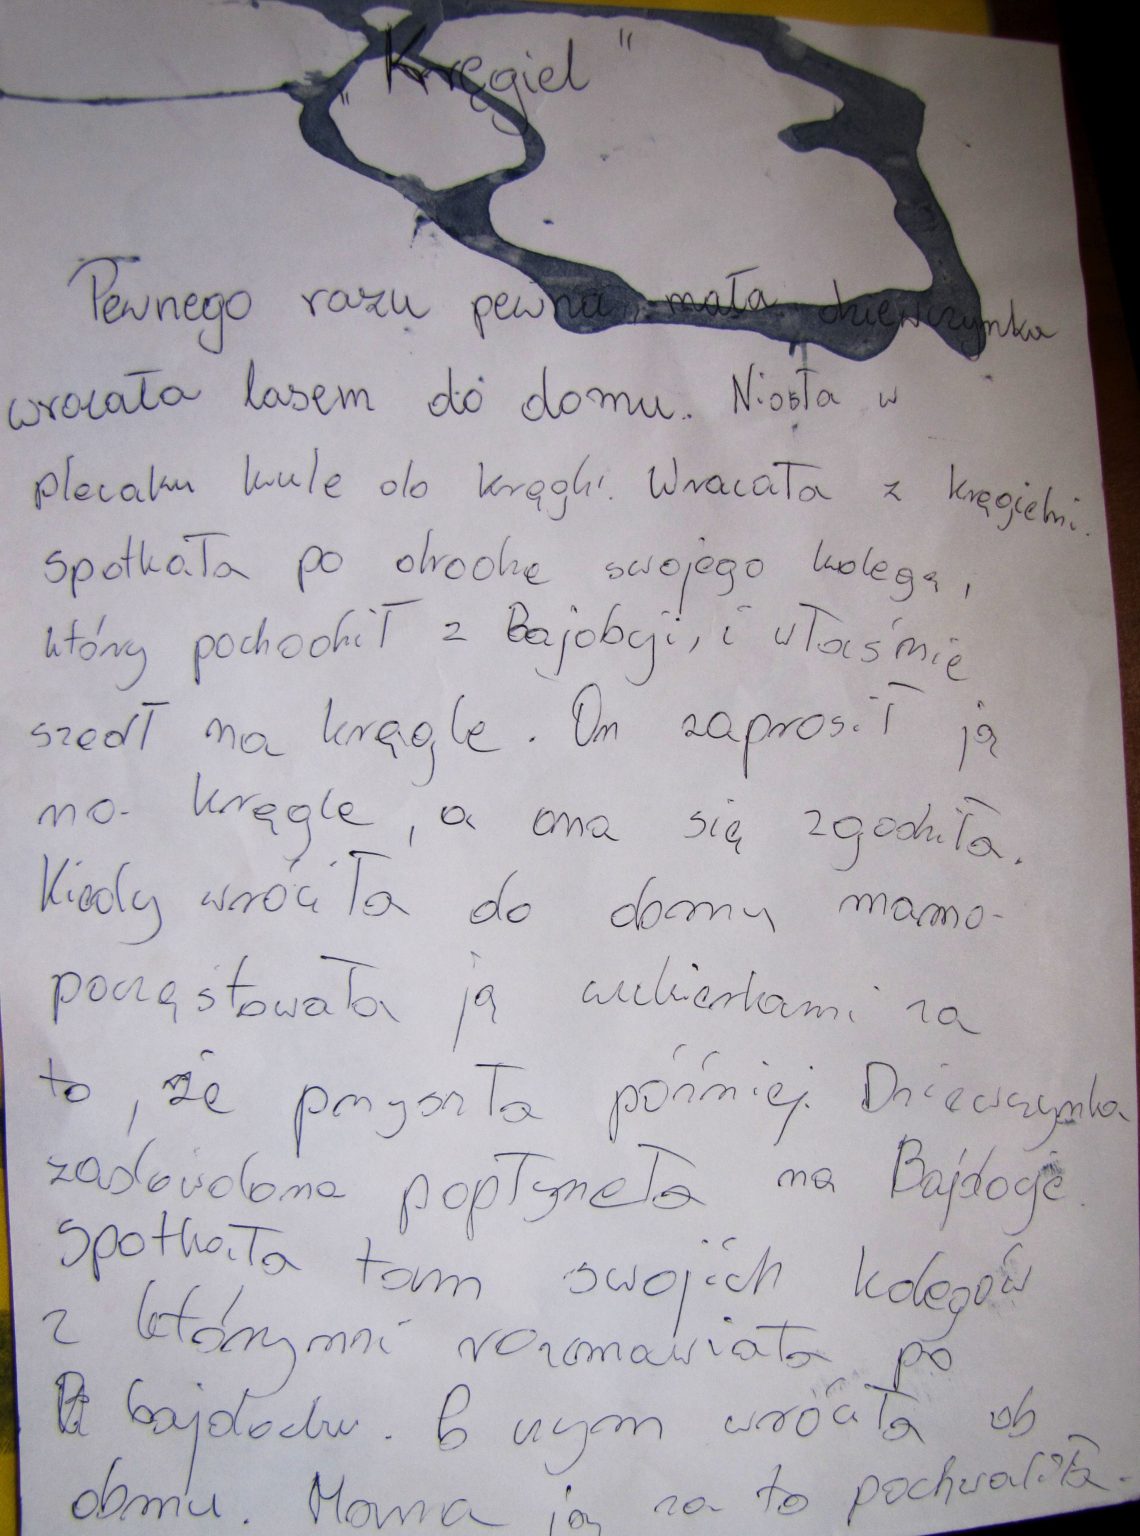 „Kręgiel"
Pewnego razu pewna, mała dziewczynka
wracała lasem do domu. Niosła w
plecaku kule do kręgli. Wracała z kręgielni.
Spotkała po drodze swojego kolegę,
który pochodził z Bajdoji, i właśnie
szedł na kręgle. On zaprosił ją
na kręgle, a ona się zgodziła.
Kiedy wróciła do domu mama
poczęstowała ją cukierkami za
to, że przyszła później. Dziewczynka
zadowolona popłyneła na Bajdoję.
Spotkała tam swojich kolegów
z którymi rozmawiała po
bajdocku. Po czym wróciła do
domu. Mama ją za to pochwaliła.